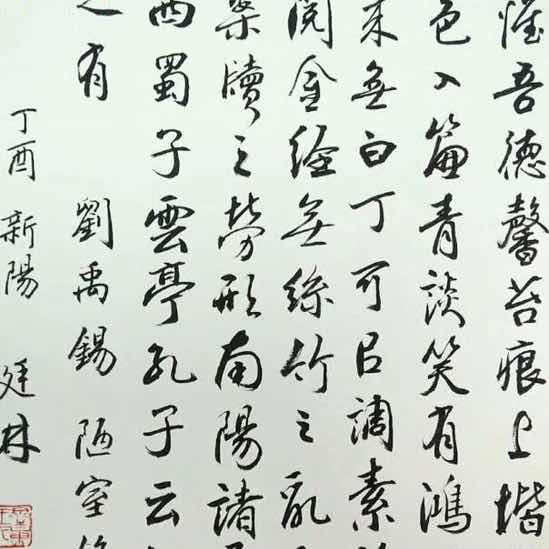 惟吾德馨苔痕上階
色入簾青談笑有鴻
來無白丁可以調素
閱金經無絲竹之亂
案牘之勞形南陽諸
西蜀子雲亭孔子云
之有 劉禹錫 陋室
丁酉 新陽 廷林